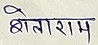 श्रोताराम